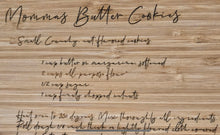 Mommas Butter Cookies
Small County nut flavored cookies
1 cup butter or margarine softened
2 cups all purpose flour
1/2 cup sugar
1 cup finely chopped walnuts
Heat oven to 325 degrees. Mix thoroughly all ingredients
Roll dough 1/4 inch thick on lightly floured cloth covered